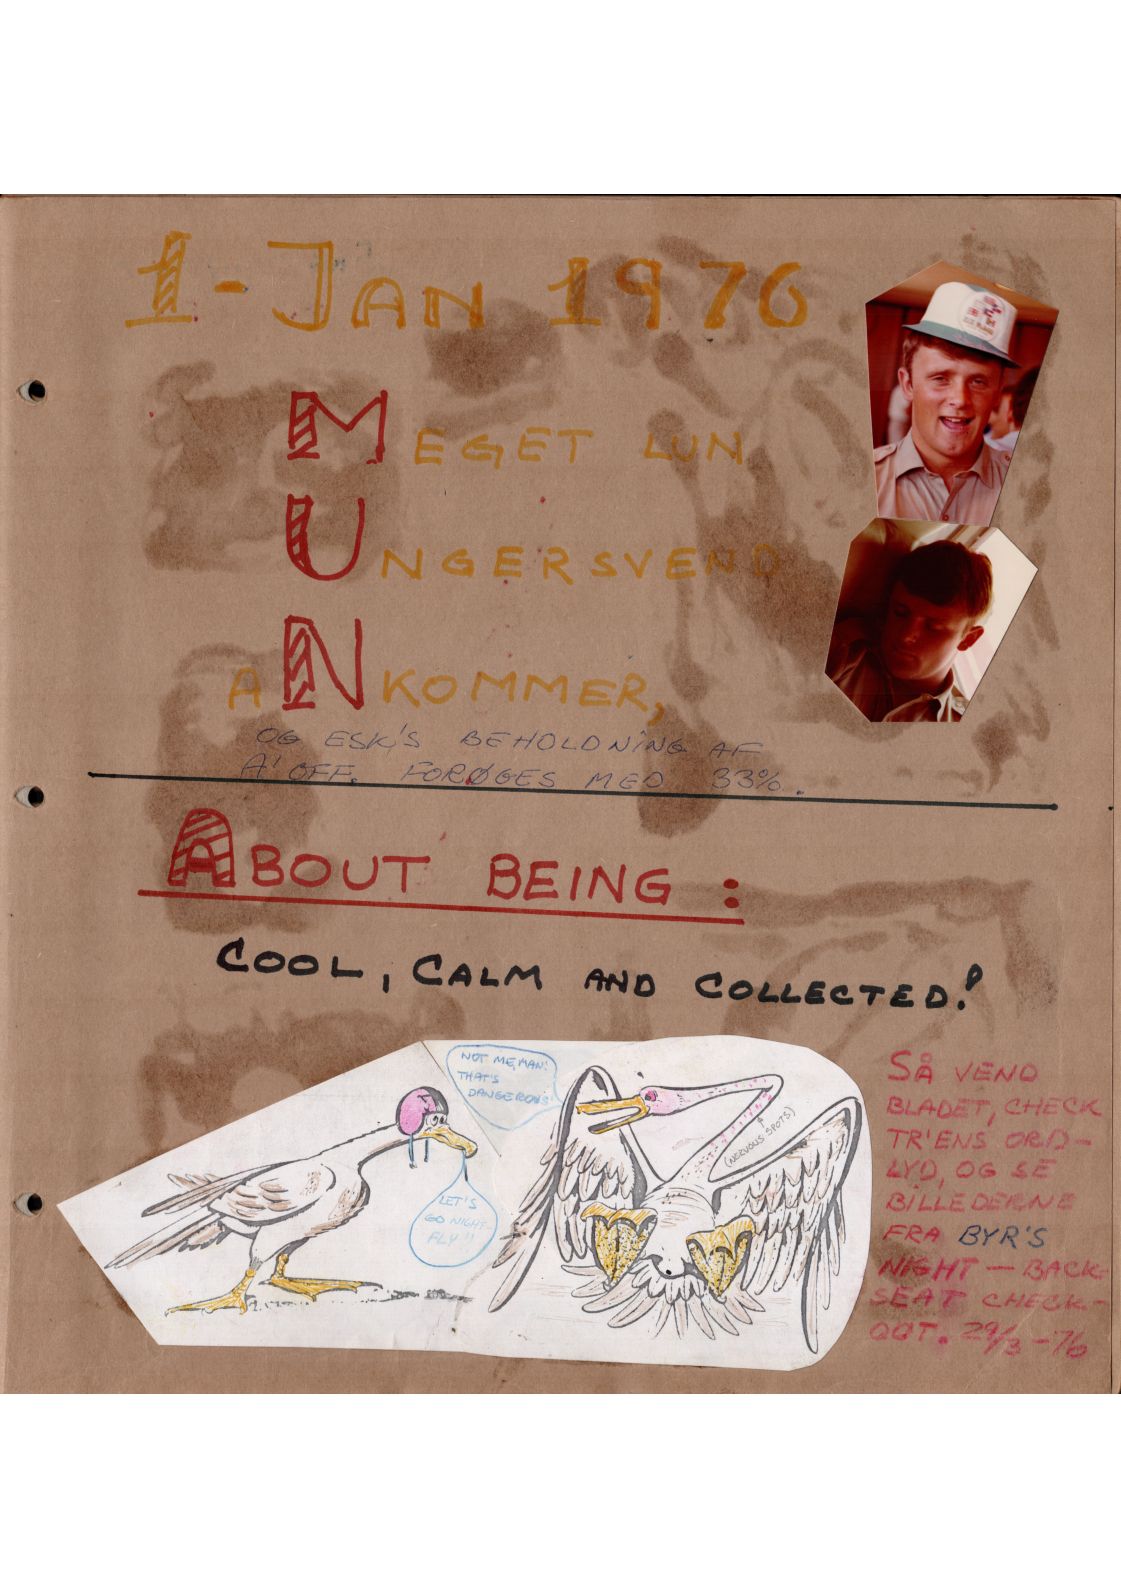 1-JAN 1976
MEGET LUN
UNGERSVEND
ANKOMMER,
OG ESK'S BEHOLDNING AF
A'OFF. FORØGES MED 33%.
ABOUT BEING:
COOL, CALM AND COLLECTED!
NOT ME, MAN!
THAT'S
DANGEROUS!
(NERVOUS SPOTS)
LET'S
GO NIGHT-
FLY!!
SÅ VEND
BLADET, CHECK
TR'ENS ORD-
LYD, OG SE
BILLEDERNE
FRA BYR'S
NIGHT - BACK-
SEAT CHECK-
OUT. 29/3-76